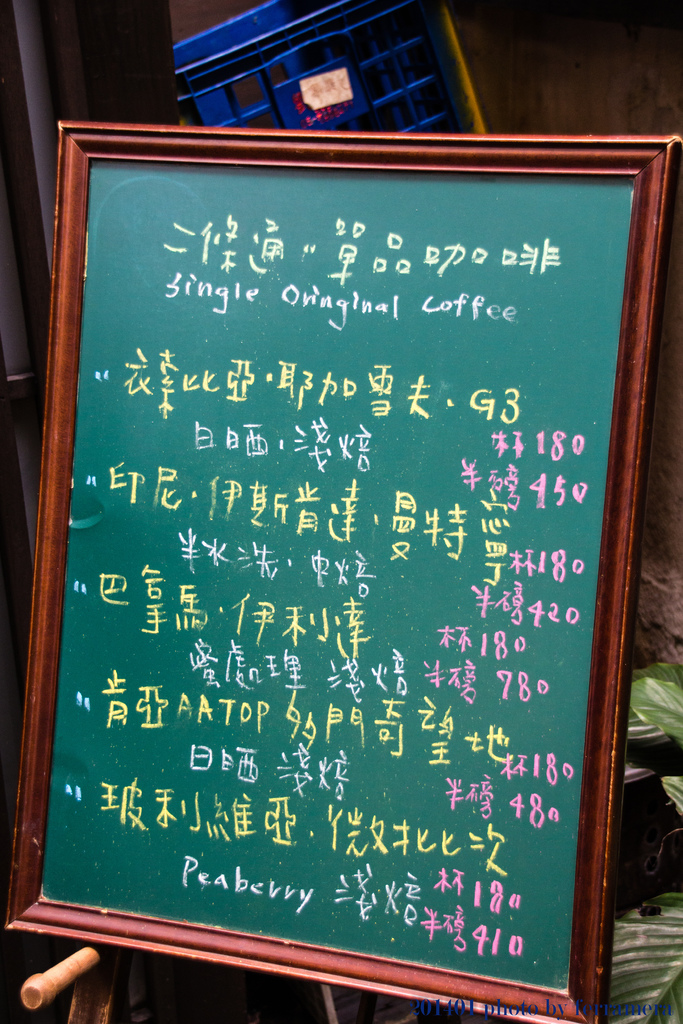 二條通"單品咖啡
Single Oringinal Coffee
" 衣索比亞·耶加雪夫·G3
日晒·淺焙 杯180
半磅450
" 印尼·伊斯肯達·曼特寧
半水洗·中焙 杯180
半磅420
" 巴拿馬·伊利達
杯180
蜜處理 淺焙 半磅780
" 肯亞AATOP 多門奇望地
日晒 淺焙 杯180
半磅480
" 玻利維亞·微批比次
Peaberry 淺焙 杯180
半磅410
201401 photo by ferrimera